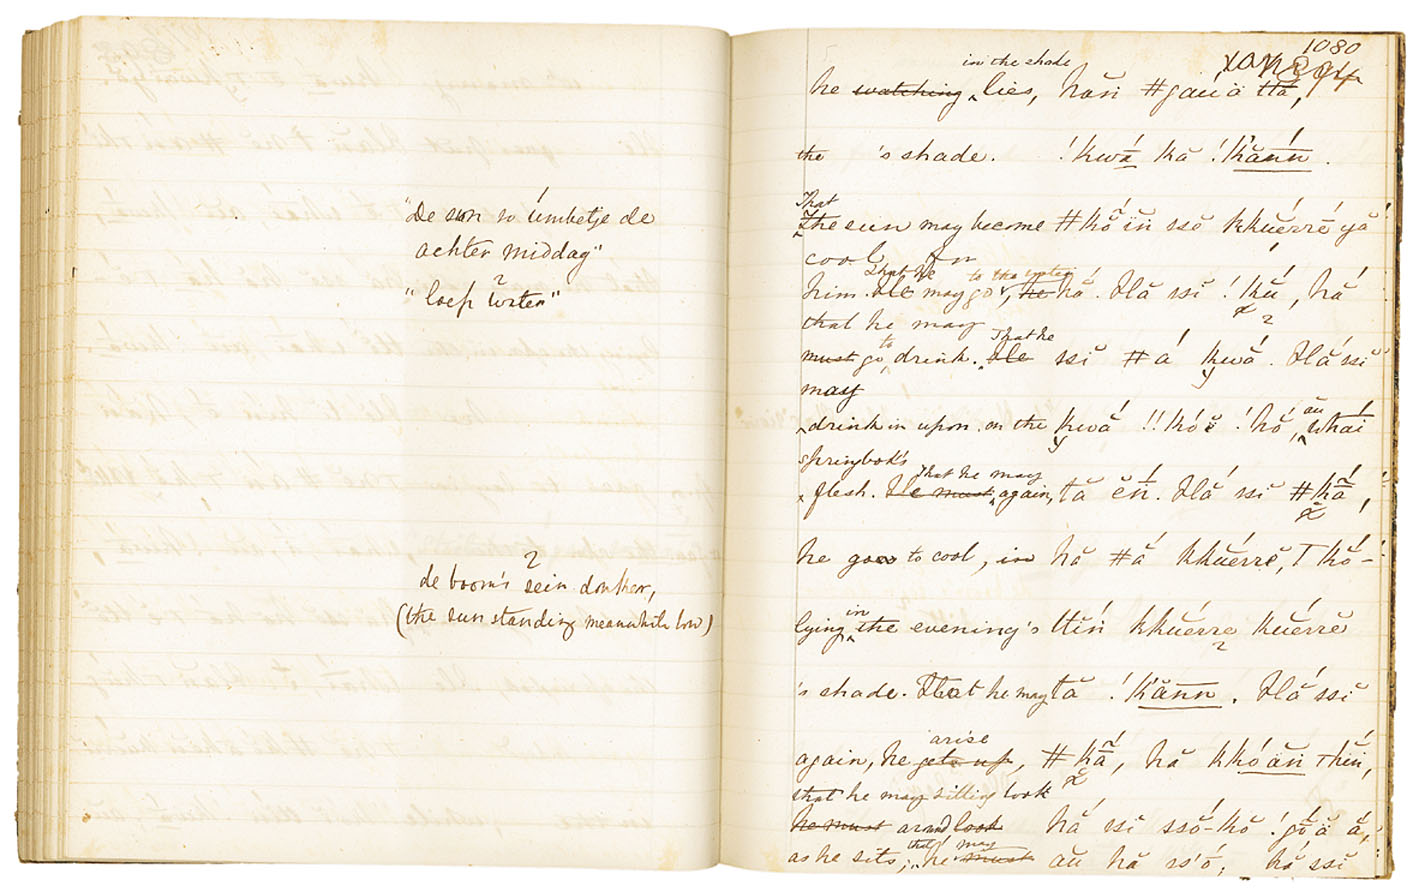 "De son so úmbetje de
achter middag"
"loep water"
de boom's sein donker,
(the sun standing meanwhile low)
1080
in the shade
he watching lies, hăn ǂgauä ttă,
the 's shade. !kwā́ kă !kắnn.
That
The sun may become ǂkṍïñ ssĕ kkŭérrĕ yắ
cool for
that he to the water
him. He may go, he hắ. Hă ssĭ !kū́, hắ
that he may
to That he
must go drink. He ssĭ ǂá kwắ. Hắ ssĭ
may
drink in upon on the kwắ !!kó !hó, au whāí
springbok's
that he may
flesh. He must again, tă ĕń. Hắ ssĭ ǂkā̃́,
he goes to cool, in hă ǂắ kkŭérrĕ, Tkŏ́-
in
lying the evening's ttíń kkŭérrĕ kŭérrĕ
's shade. That he may tă !kắnn. Hắ ssĭ
arise
again, he gets up, ǂkā̃́, hă kkóăñ thĭń,
that he may sitting look
he must around look hắ ssi ssŏ́-kŏ !gṍä ắ,
that may
as he sits; he must aŭ hă ss'ŏ́, hắ ssĭ